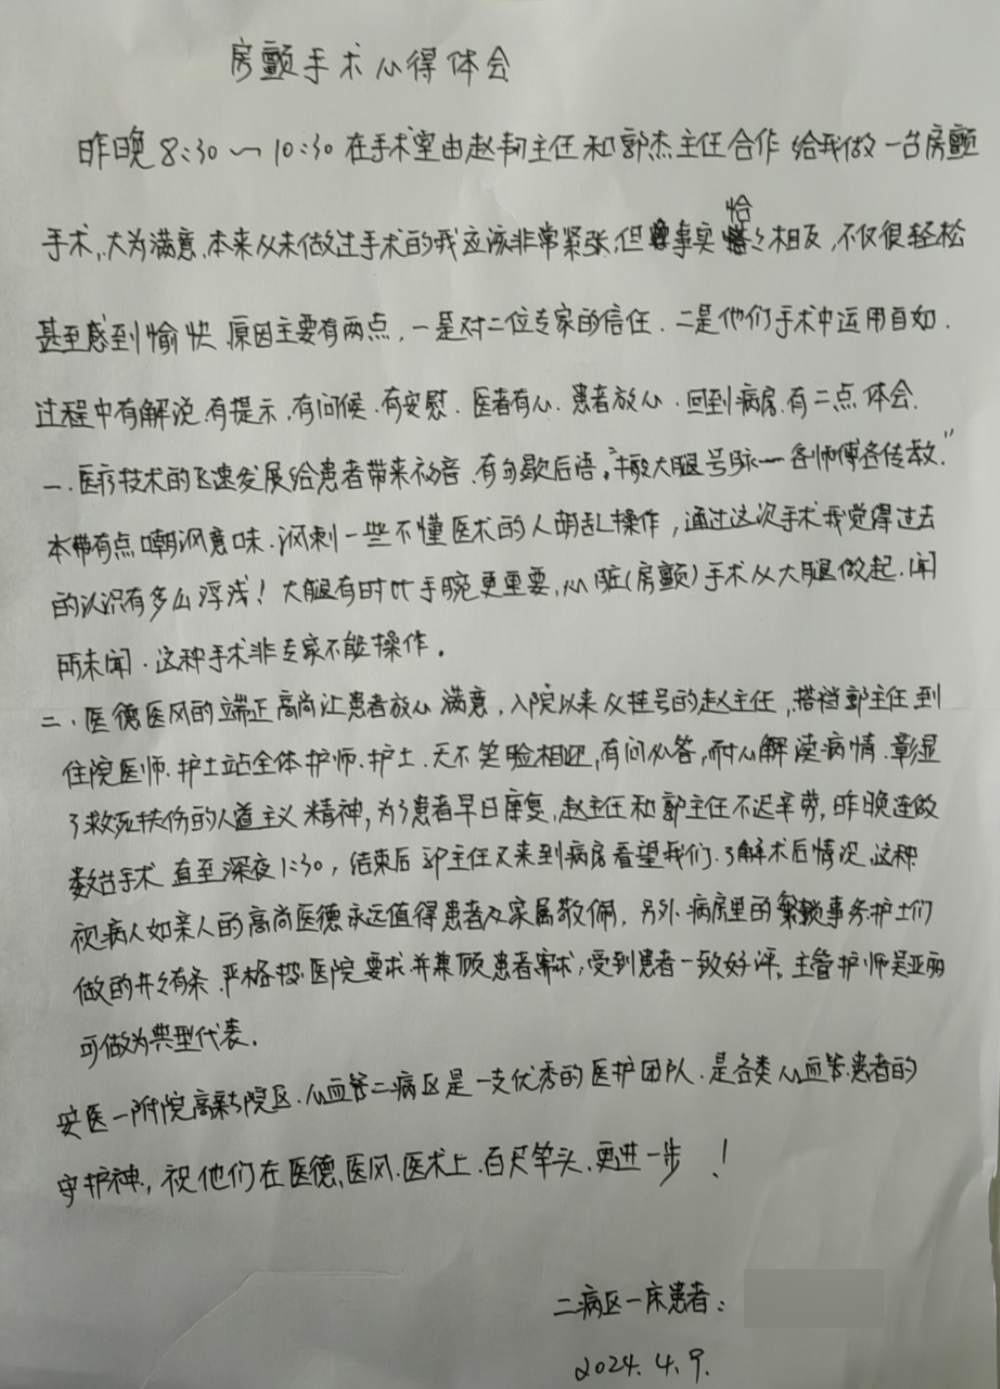 房颤手术心得体会
昨晚8:30—10:30在手术室由赵韧主任和郭杰主任合作给我做一台房颤
手术,大为满意,本来从未做过手术的我应该非常紧张,但事实恰々相反,不仅很轻松
甚至感到愉快.原因主要有两点,一是对二位专家的信任.二是他们手术中运用自如.
过程中有解说.有提示.有问候.有安慰.医者有心.患者放心.回到病房.有二点体会.
一.医疗技术的飞速发展给患者带来福音.有句歇后语,"搬大腿号脉一各师傅各传教."
本带有点嘲讽意味.讽刺一些不懂医术的人胡乱操作,通过这次手术我觉得过去
的认识有多么浮浅!大腿有时比手腕更重要,心脏(房颤)手术从大腿做起.闻
所未闻.这种手术非专家不能操作.
二.医德医风的端正高尚让患者放心满意,入院以来从挂号的赵主任,搭档郭主任到
住院医师.护士站全体护师.护士.无不笑脸相迎,有问必答,耐心解读病情.彰显
了救死扶伤的人道主义精神,为了患者早日康复,赵主任和郭主任不迟辛劳,昨晚连做
数台手术直至深夜1:30,结束后郭主任又来到病房看望我们.了解术后情况.这种
视病人如亲人的高尚医德永远值得患者及家属敬佩.另外.病房里的繁锁事务护士们
做的井々有条.严格按医院要求并兼顾患者需求,受到患者一致好评.主管护师吴亚丽
可做为典型代表.
安医一附院高新院区.心血管二病区是一支优秀的医护团队.是各类心血管患者的
守护神,祝他们在医德,医风.医术上.百尺竿头.更进一步!
二病区一床患者:
2024.4.9.